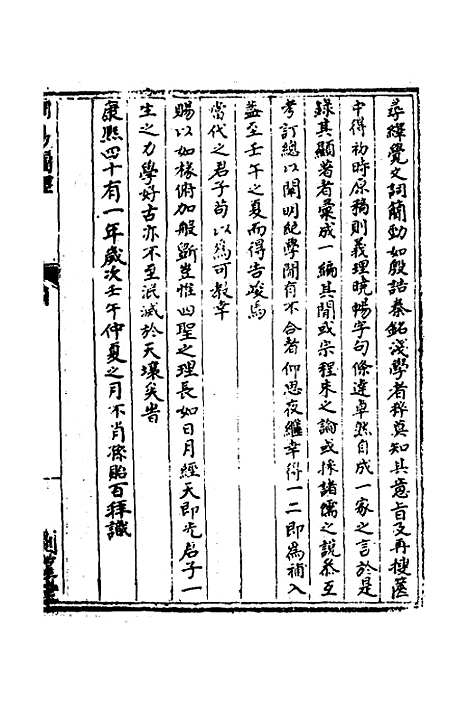 尋繹覺文詞簡勁如殷誥秦銘淺學者稡莫知其意旨及再搜篋
中得初時原稿則義理曉暢字句條達卓然自成一家之言於是
錄其顯著者彙成一編其間或宗程朱之論或採諸儒之說叅互
考訂總以闡明紀學間有不合者仰思夜繼幸得一二即為補入
盖至壬午之夏而得告竣焉
當代之君子苟以為可教幸
賜以如椽俯加般斵豈惟四聖之理長如日月經天即先君子一
生之力學好古亦不至泯滅於天壤矣旹
康熙四十有一年歲次壬午仲夏之月不肖滌貽百拜識